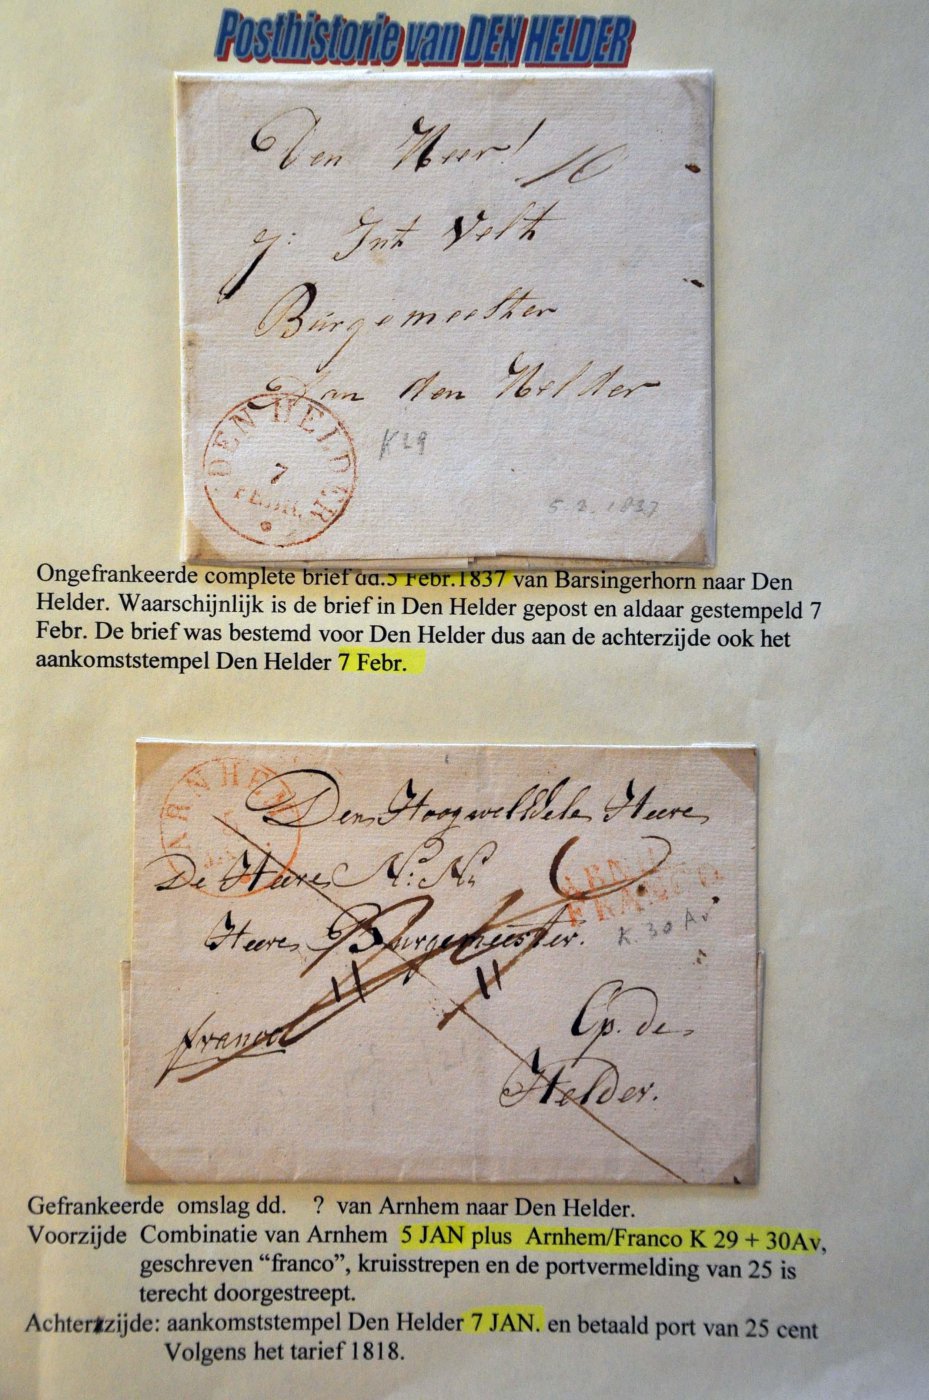 Posthistorie van DEN HELDER
Den Heer!
10
J: Int Velt
Burgemeester
Van den Helder
DEN HELDER
7
FEBR.
K29
5. 2. 1837
Ongefrankeerde complete brief dd.5 Febr.1837 van Barsingerhorn naar Den
Helder. Waarschijnlijk is de brief in Den Helder gepost en aldaar gestempeld 7
Febr. De brief was bestemd voor Den Helder dus aan de achterzijde ook het
aankomststempel Den Helder 7 Febr.
ARNHEM
5
JAN.
Den Hoogweldele Heere
De Heere N: N:
ARNHEM
FRANCO
Heere Burgemeester.
K. 30 Av
franco
Op de
Helder.
Gefrankeerde omslag dd. ? van Arnhem naar Den Helder.
Voorzijde Combinatie van Arnhem 5 JAN plus Arnhem/Franco K 29 + 30Av,
geschreven “franco”, kruisstrepen en de portvermelding van 25 is
terecht doorgestreept.
Achterzijde: aankomststempel Den Helder 7 JAN. en betaald port van 25 cent
Volgens het tarief 1818.